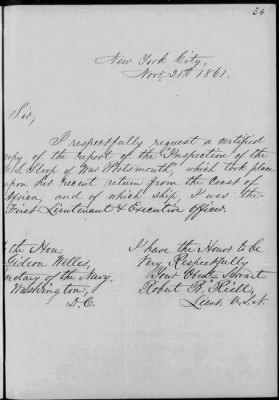 36
New York City,
Novr. 21st 1861.
Sir,
I respectfully request a certified
copy of the report of the "Inspection of the
U.S. Sloop of War Portsmouth", which took place
upon her recent return from the Coast of
Africa, and of which ship, I was the
First Lieutenant & Executive officer.
I have the Honor to be
Very Respectfully
Your Obedt. Servant
Robert B. Riell,
Lieut. U.S.N.
the Hon.
Gideon Welles,
cretary of the Navy,
Washington,
D.C.